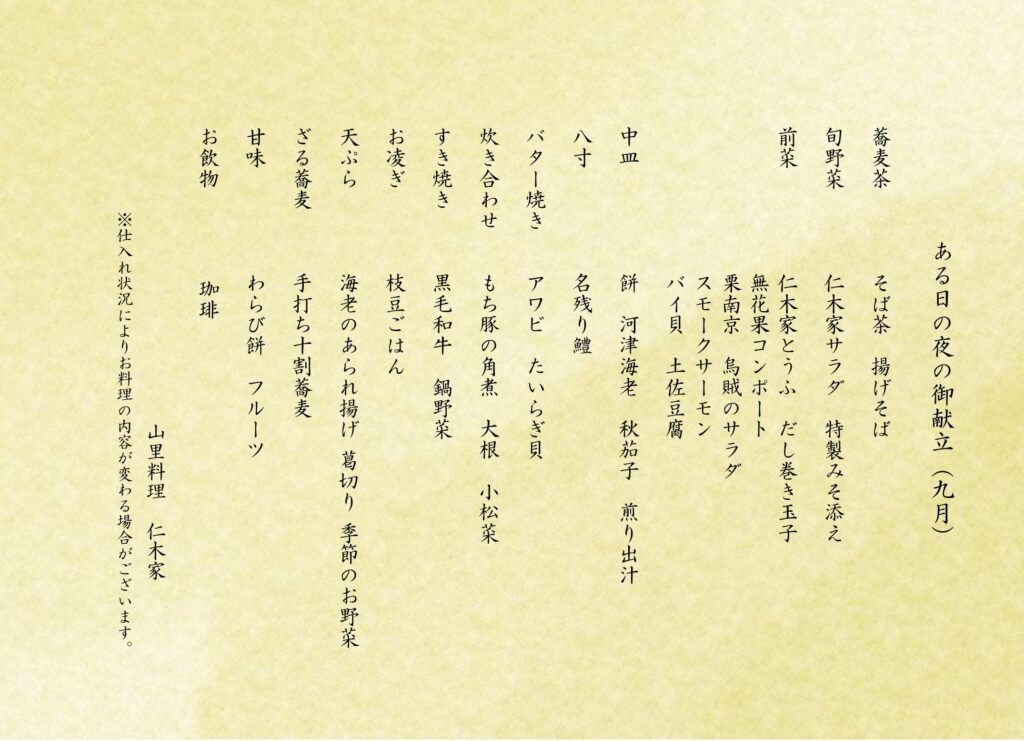 ある日の夜の御献立（九月）
蕎麦茶　そば茶　揚げそば
旬野菜　仁木家サラダ　特製みそ添え
前菜　仁木家とうふ　だし巻き玉子
無花果コンポート
栗南京　烏賊のサラダ
スモークサーモン
バイ貝　土佐豆腐
中皿　餅　河津海老　秋茄子　煎り出汁
八寸　名残り鱧
バター焼き　アワビ　たいらぎ貝
炊き合わせ　もち豚の角煮　大根　小松菜
すき焼き　黒毛和牛　鍋野菜
お凌ぎ　枝豆ごはん
天ぷら　海老のあられ揚げ 葛切り 季節のお野菜
ざる蕎麦　手打ち十割蕎麦
甘味　わらび餅　フルーツ
お飲物　珈琲
山里料理　仁木家
※仕入れ状況によりお料理の内容が変わる場合がございます。